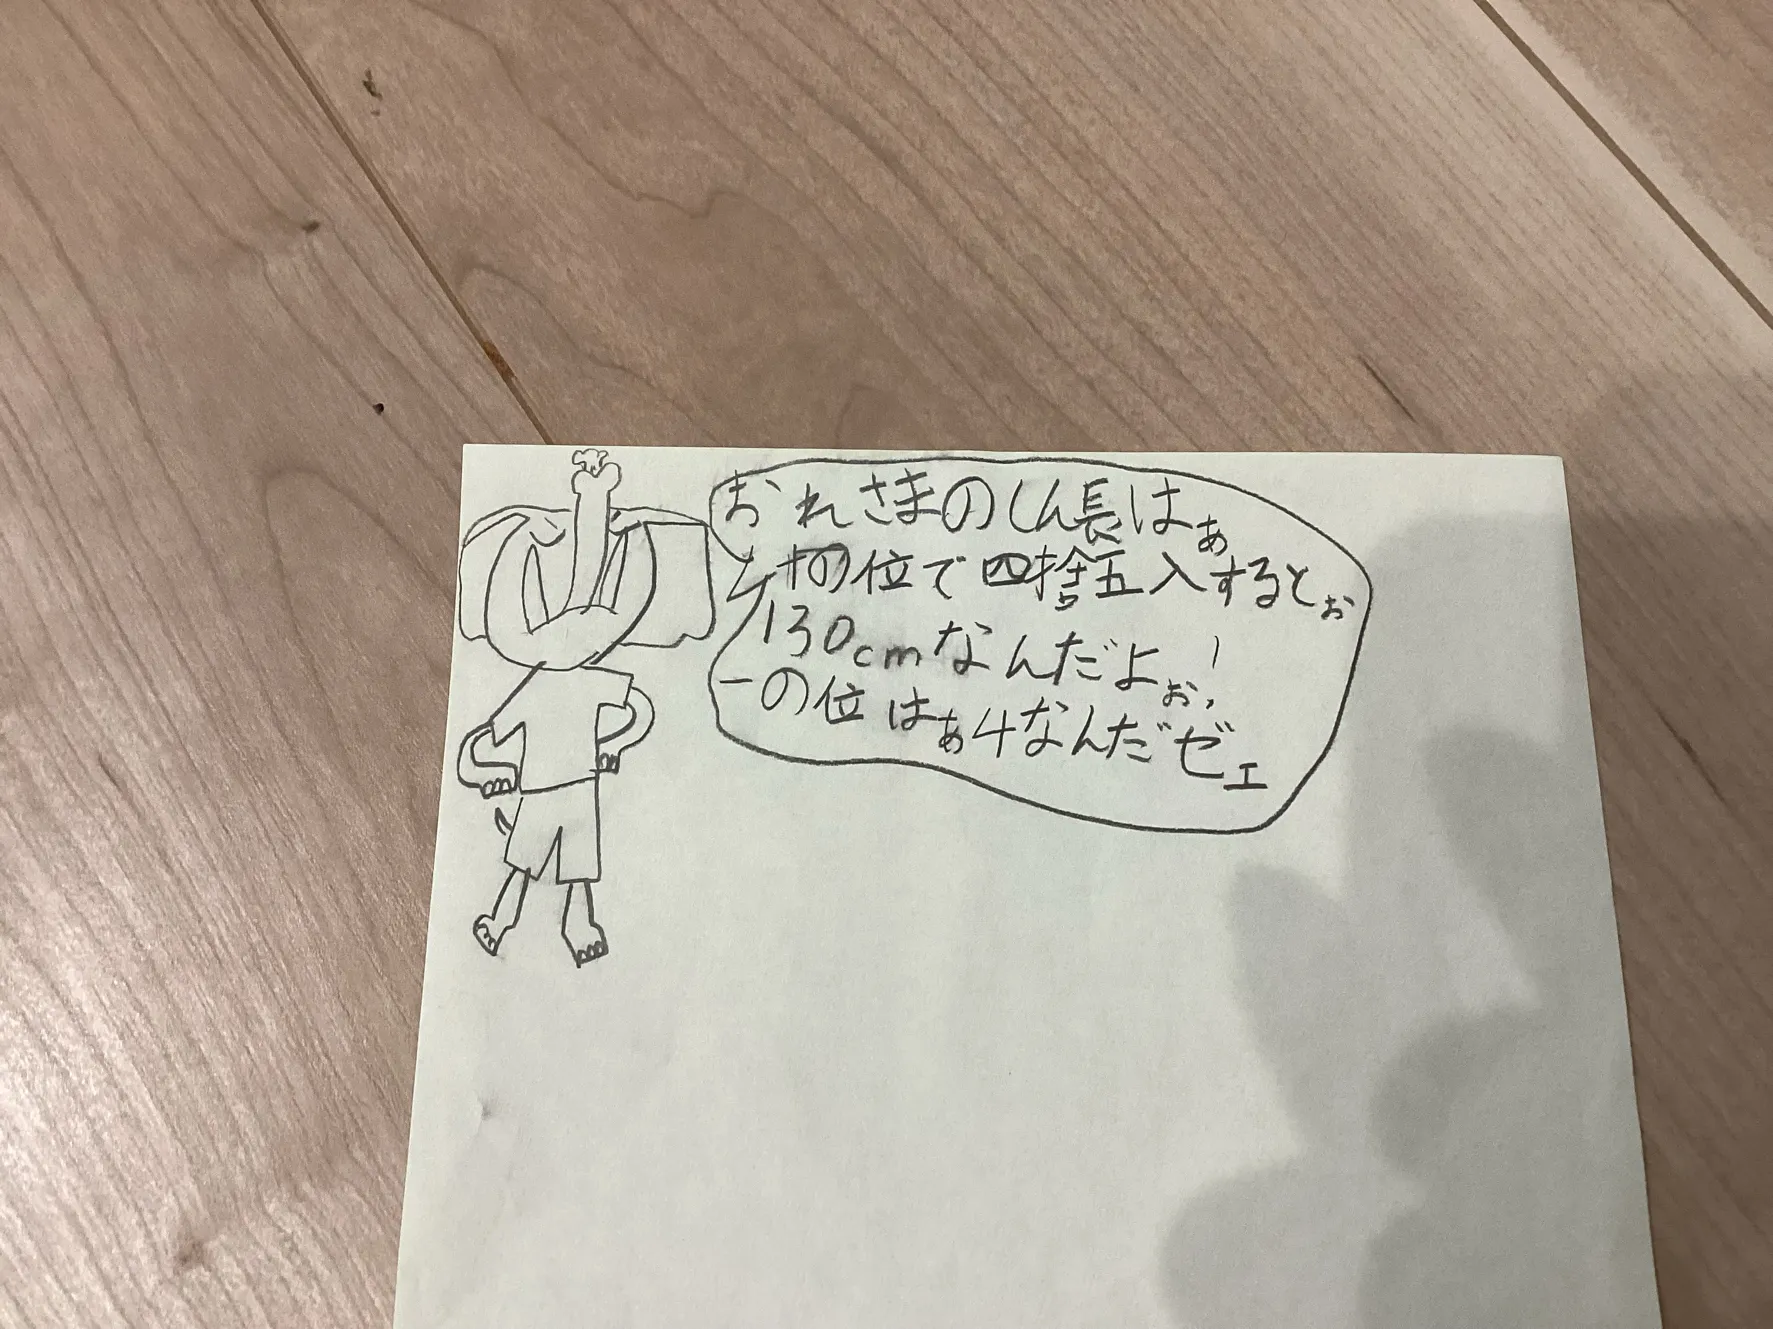 おれさまのしん長はぁ
十の位で四捨五入するとぉ
130cmなんだよぉ!
一の位はぁ4なんだゼェ